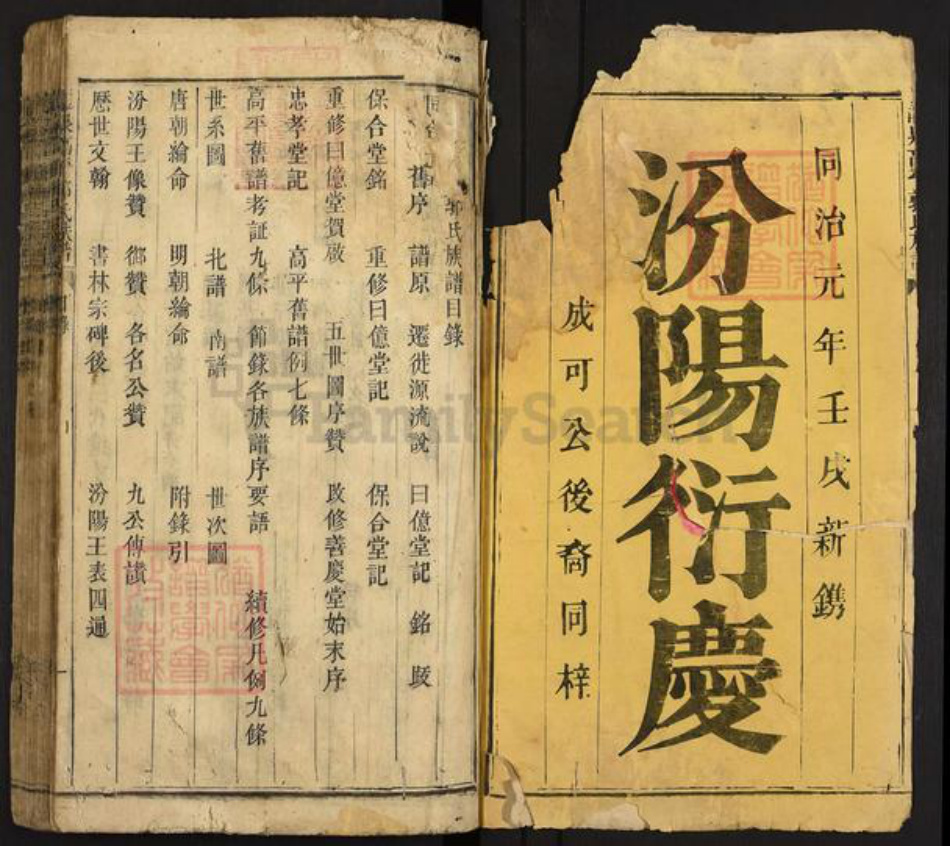 同治元年壬戌新鐫
汾陽衍慶
成可公後裔同梓
氏族譜目錄
舊序 譜原 遷徙源流說 曰億堂記 銘 跋
保合堂銘 重修曰億堂記 保合堂記
重修曰億堂賀啟 五世圖序贊 改修善慶堂始末序
忠孝堂記 高平舊譜例七條
高平舊譜考証九條 節錄各族譜序要語 續修凡例九條
世系圖 北譜 南譜 世次圖
唐朝綸命 明朝綸命 附錄引
汾陽王像贊 鄉贊 各名公贊 九公傳讃
歷世文翰 書林宗碑後 汾陽王表四通
FamilySearch